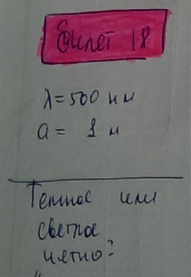 Билет 18
λ = 500 нм
a = 1 м
Темное или
светлое
пятно?